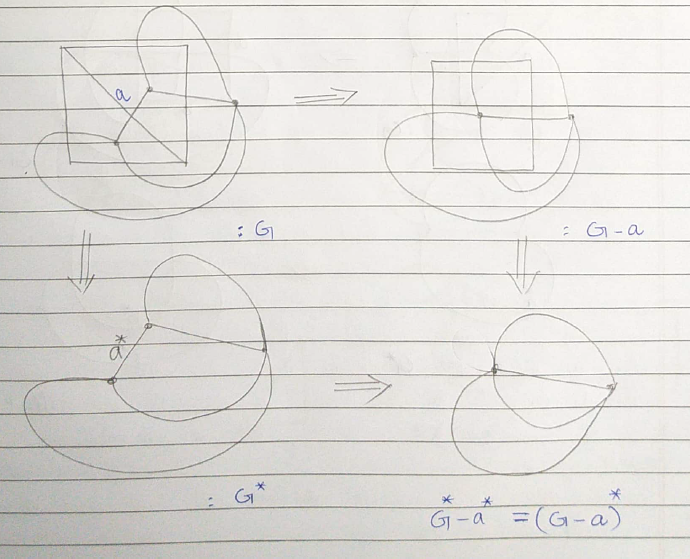 a
: G
: G-a
a*
: G*
G*-a* =(G-a)*